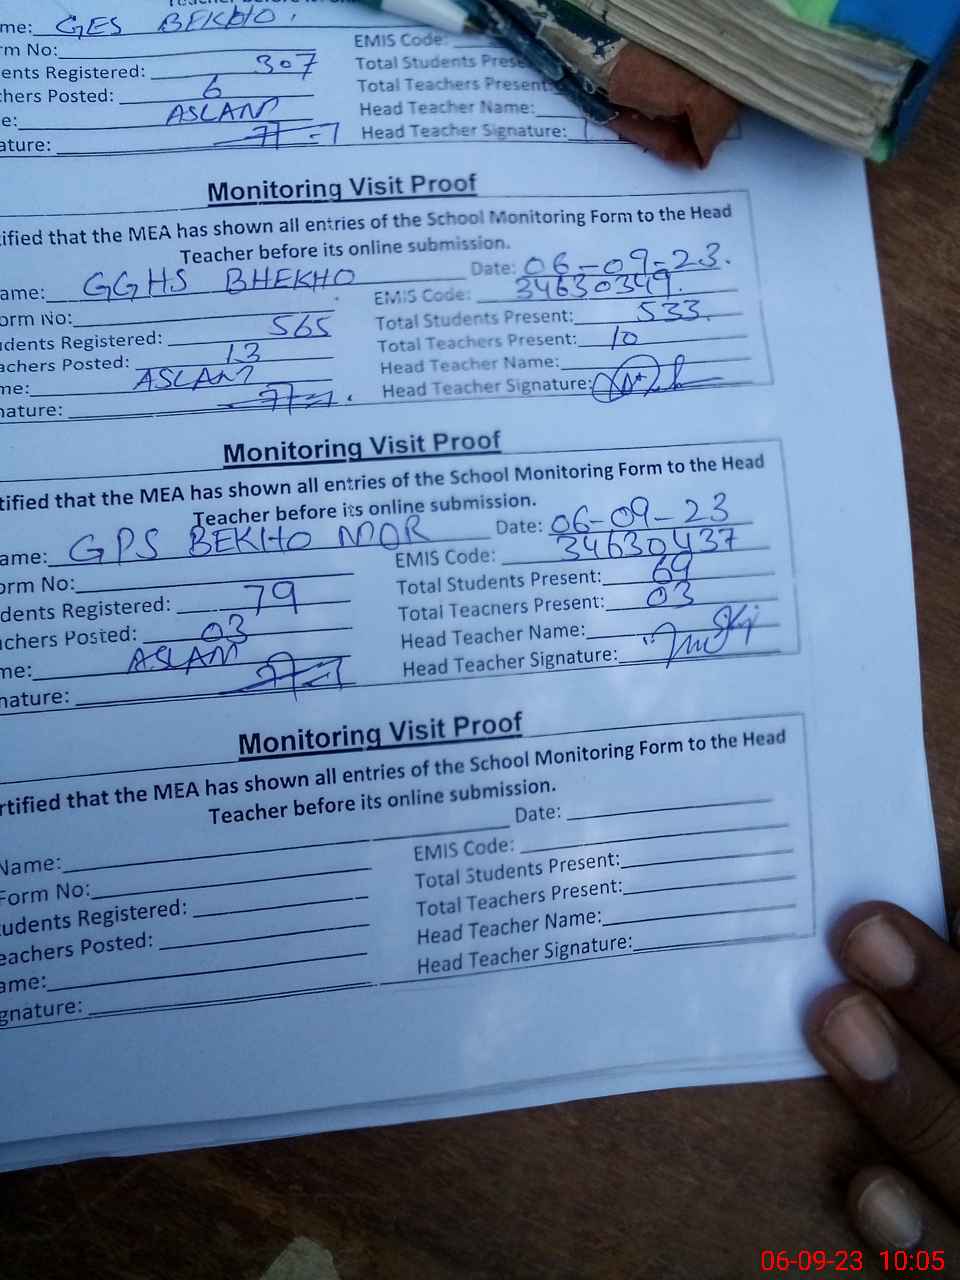 me: GES BEKHO.
rm No:
EMIS Code:
ents Registered: 307
Total Students Prese
chers Posted: 6
Total Teachers Present:
e: ASLAM
Head Teacher Name:
ature:
Head Teacher Signature:
Monitoring Visit Proof
ified that the MEA has shown all entries of the School Monitoring Form to the Head
Teacher before its online submission.
ame: GGHS BHEKHO
Date: 06-09-23.
orm No:
EMIS Code: 34630349.
udents Registered: 565
Total Students Present: 533.
achers Posted: 13
Total Teachers Present: 10
me: ASLAM
Head Teacher Name:
nature:
Head Teacher Signature:
Monitoring Visit Proof
tified that the MEA has shown all entries of the School Monitoring Form to the Head
Teacher before its online submission.
ame: GPS BEKHO MOR
Date: 06-09-23
orm No:
EMIS Code: 34630437
dents Registered: 79
Total Students Present: 69
achers Posted: 03
Total Teachers Present: 03
me: ASLAM
Head Teacher Name:
nature:
Head Teacher Signature:
Monitoring Visit Proof
rtified that the MEA has shown all entries of the School Monitoring Form to the Head
Teacher before its online submission.
Name:
Date:
Form No:
EMIS Code:
tudents Registered:
Total Students Present:
eachers Posted:
Total Teachers Present:
ame:
Head Teacher Name:
gnature:
Head Teacher Signature:
06-09-23 10:05